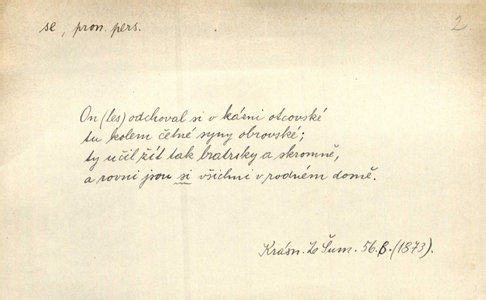 se, pron. pers.
2
On (les) odchoval si v kázni otcovské
tu kolem četné syny obrovské;
ty učil žít tak bratrsky a skromně,
a rovni jsou si všichni v rodném domě.
Krásn. Z Šum. 56.B.(1873).